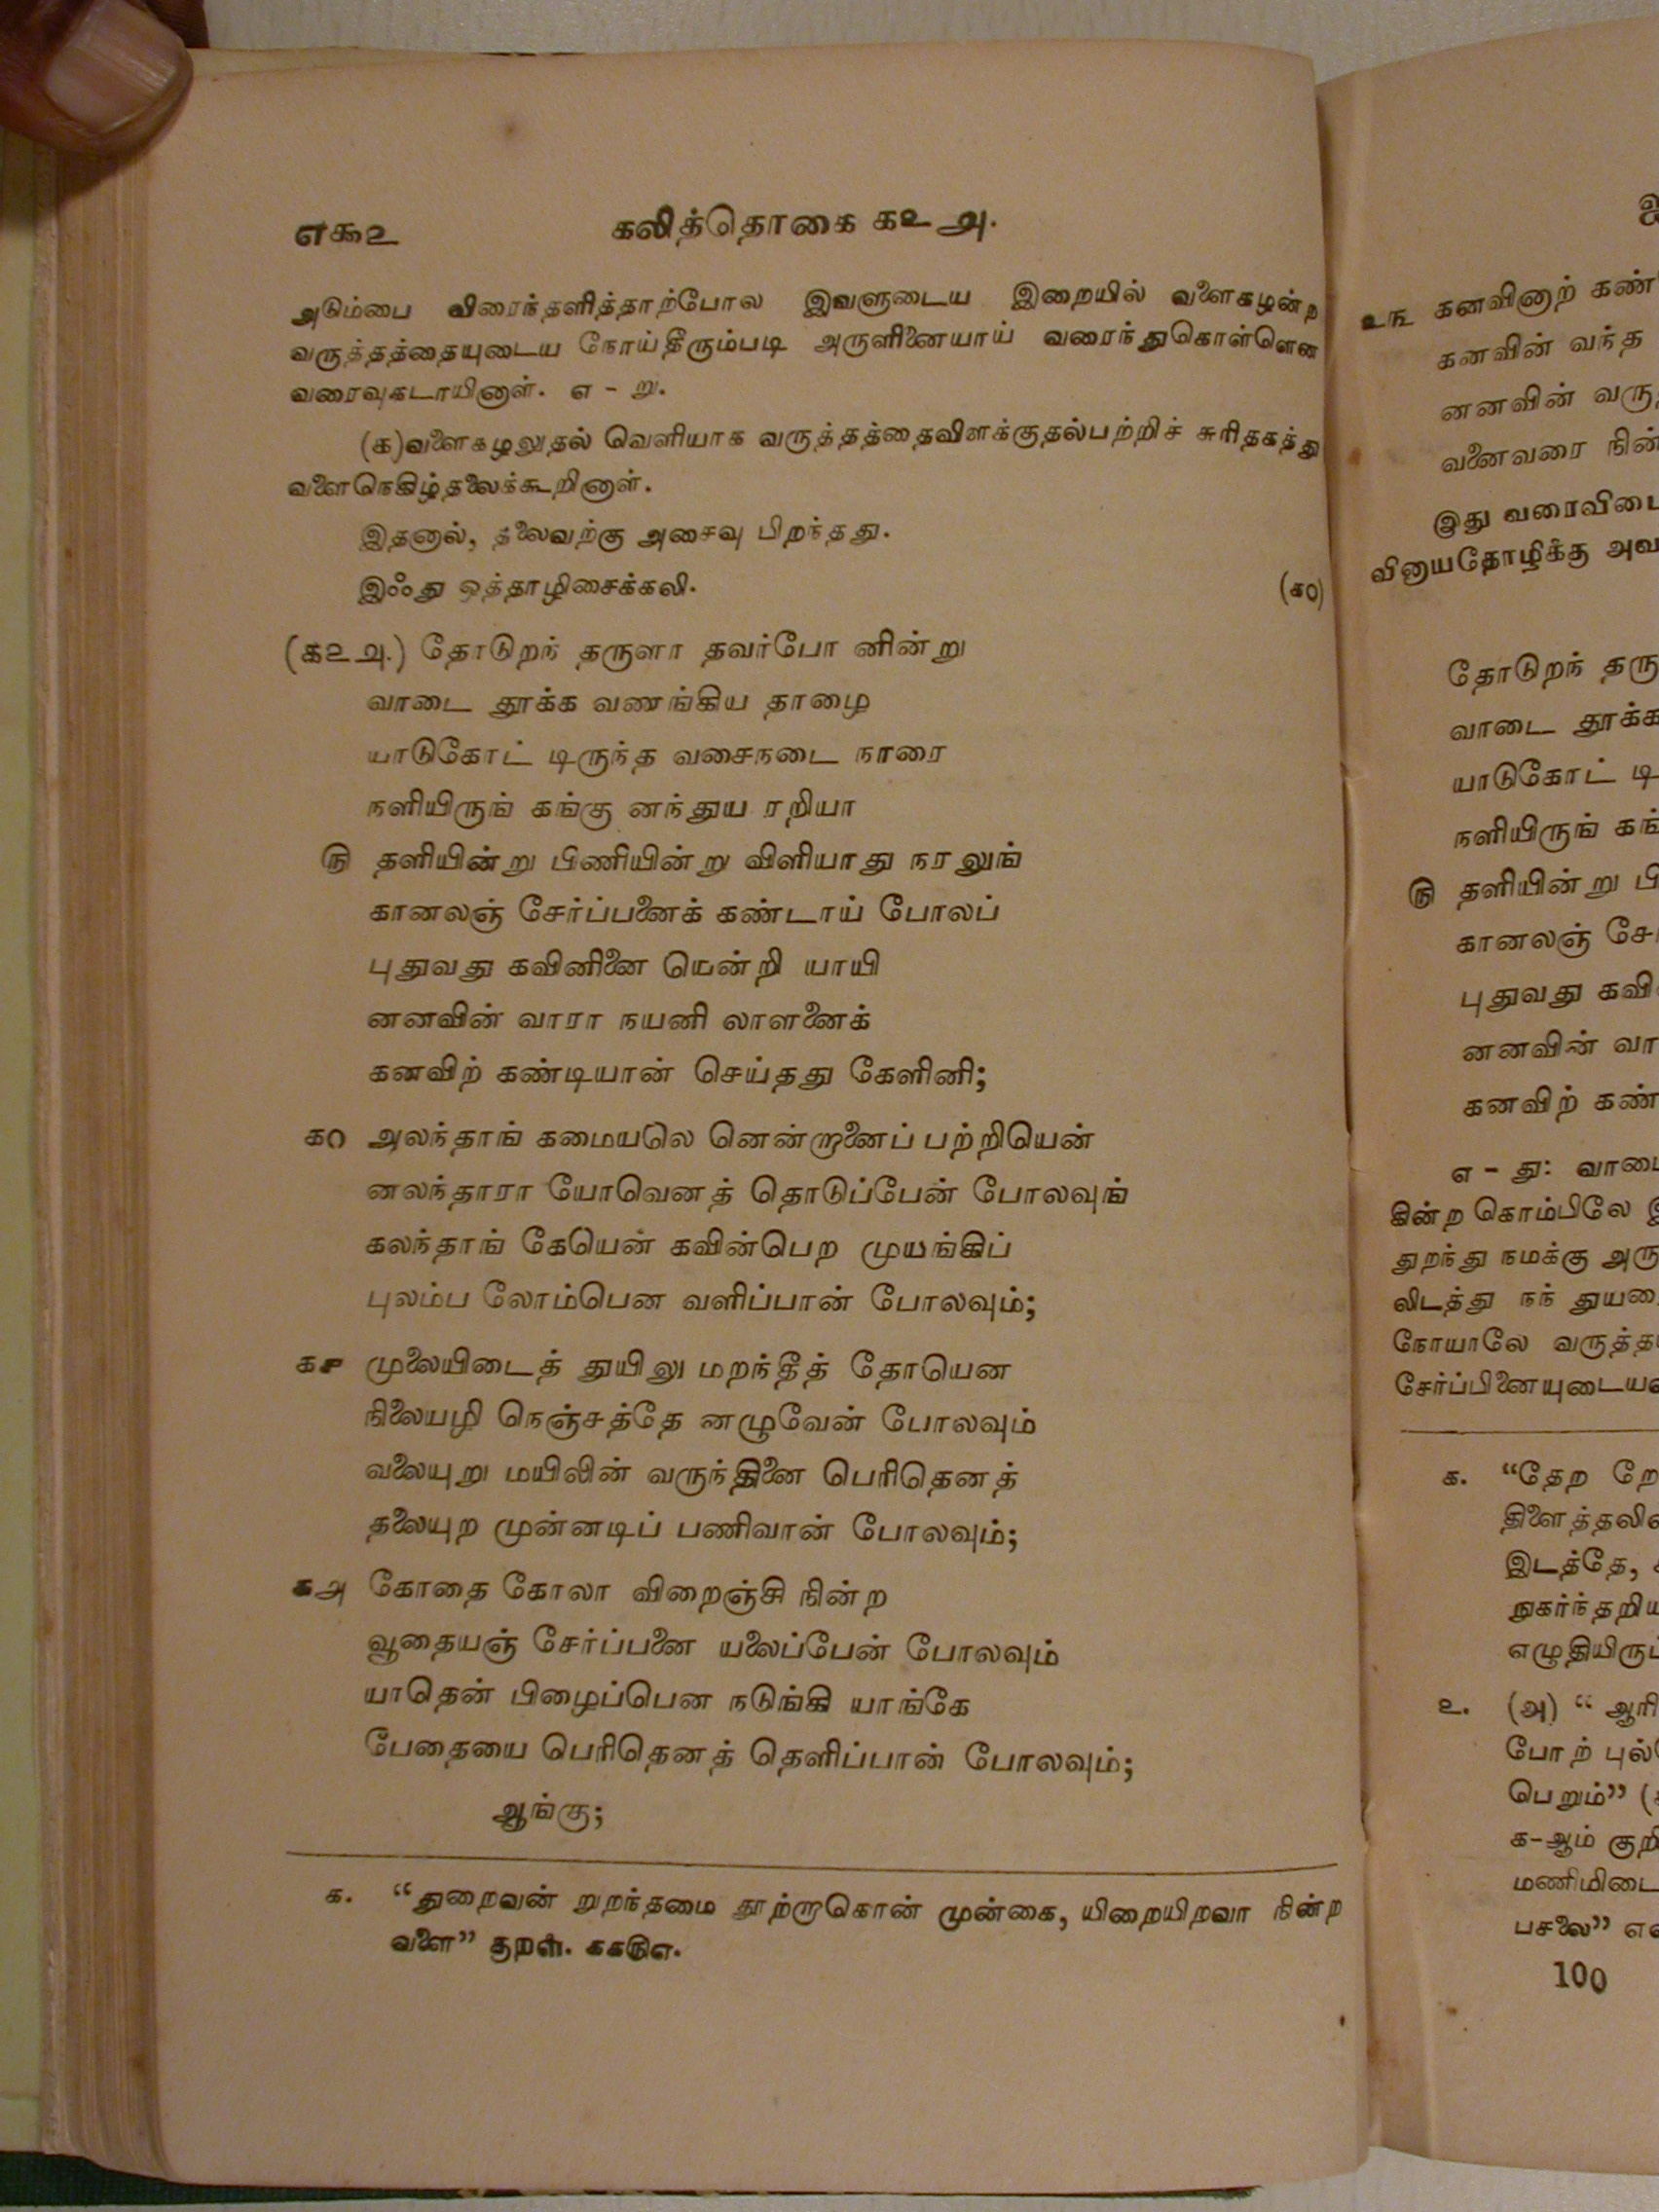 எ௯௨ கலித்தொகை க௨அ.
அடும்பை விரைந்தளித்தாற்போல இவளுடைய இறையில் வளைகழன்ற
வருத்தத்தையுடைய நோய்தீரும்படி அருளினையாய் வரைந்துகொள்ளென
வரைவுகடாயினாள். எ - று.
(க)வளைகழலுதல் வெளியாக வருத்தத்தைவிளக்குதல்பற்றிச் சுரிதகத்து
வளைநெகிழ்தலைக்கூறினாள்.
இதனால், தலைவற்கு அசைவு பிறந்தது.
இஃது ஒத்தாழிசைக்கலி. (க௦)
(க௨அ.) தோடுறந் தருளா தவர்போ னின்று
வாடை தூக்க வணங்கிய தாழை
யாடுகோட் டிருந்த வசைநடை நாரை
நளியிருங் கங்கு னந்துய ரறியா
௫ தளியின்று பிணியின்று விளியாது நரலுங்
கானலஞ் சேர்ப்பனைக் கண்டாய் போலப்
புதுவது கவினினை யென்றி யாயி
னனவின் வாரா நயனி லாளனைக்
கனவிற் கண்டியான் செய்தது கேளினி;
க௦ அலந்தாங் கமையலெ னென்றானைப் பற்றியென்
னலந்தாரா யோவெனத் தொடுப்பேன் போலவுங்
கலந்தாங் கேயென் கவின்பெற முயங்கிப்
புலம்ப லோம்பென வளிப்பான் போலவும்;
க௪ முலையிடைத் துயிலு மறந்தீத் தோயென
நிலையழி நெஞ்சத்தே னழுவேன் போலவும்
வலையுறு மயிலின் வருந்தினை பெரிதெனத்
தலையுற முன்னடிப் பணிவான் போலவும்;
க௮ கோதை கோலா விறைஞ்சி நின்ற
வூதையஞ் சேர்ப்பனை யலைப்பேன் போலவும்
யாதென் பிழைப்பென நடுங்கி யாங்கே
பேதையை பெரிதெனத் தெளிப்பான் போலவும்;
ஆங்கு;
க. “துறைவன் றுறந்தமை தூற்றாகொன் முன்கை, யிறையிறவா நின்ற
வளை” குறள். கக௫எ.
௨௩ கனவினாற்
கனவின் வந்த
னனவின்
வனைவரை
இது
வினாயதோழிக்கு
தோடுறந்
வாடை தூக்க
யாடுகோட்
நளியிருங்
௫ தளியின்று
கானலஞ்
புதுவது
னனவின்
கனவிற்
எ - து:
கின்ற கொம்பிலே
துறந்து நமக்கு
லிடத்து நந்
நோயாலே
க. “தேற
இடத்தே,
௨. (அ) “
போற்
பெறும்”
க-ஆம்
பசலை”
100